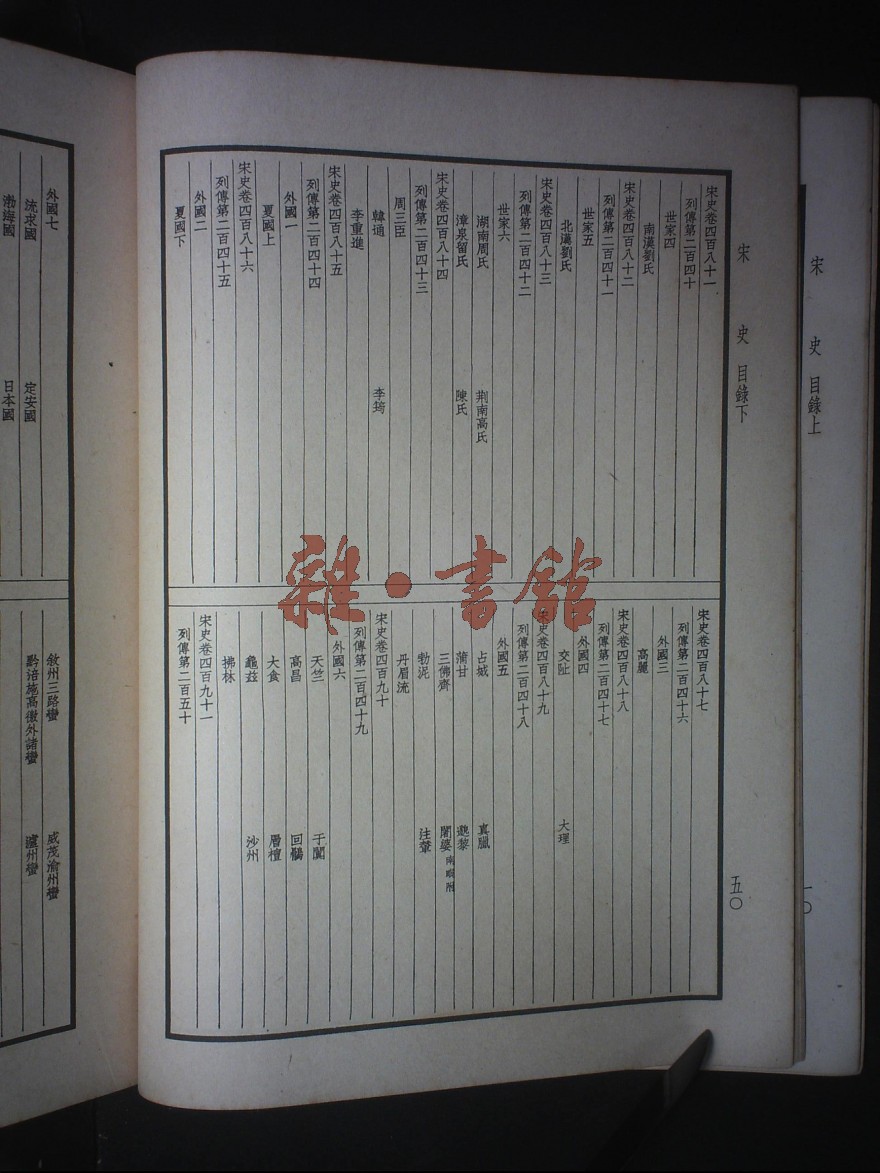 宋史 目錄上
一〇
宋史 目錄下
五〇
宋史卷四百八十一
列傳第二百四十
世家四
南漢劉氏
宋史卷四百八十二
列傳第二百四十一
世家五
北漢劉氏
宋史卷四百八十三
列傳第二百四十二
世家六
湖南周氏 荆南高氏
漳泉留氏 陳氏
宋史卷四百八十四
列傳第二百四十三
周三臣
韓通 李筠
李重進
宋史卷四百八十五
列傳第二百四十四
外國一
夏國上
宋史卷四百八十六
列傳第二百四十五
外國二
夏國下
宋史卷四百八十七
列傳第二百四十六
外國三
高麗
宋史卷四百八十八
列傳第二百四十七
外國四
交阯 大理
宋史卷四百八十九
列傳第二百四十八
外國五
占城 真臘
蒲甘 邈黎
三佛齊 闍婆 南毗附
勃泥 注輦
丹眉流
宋史卷四百九十
列傳第二百四十九
外國六
天竺 于闐
高昌 回鶻
大食 層檀
龜茲 沙州
拂林
宋史卷四百九十一
列傳第二百五十
外國七
流求國 定安國
渤海國 日本國
敘州三路蠻 威茂渝州蠻
黔涪施高徼外諸蠻 瀘州蠻
雜·書館